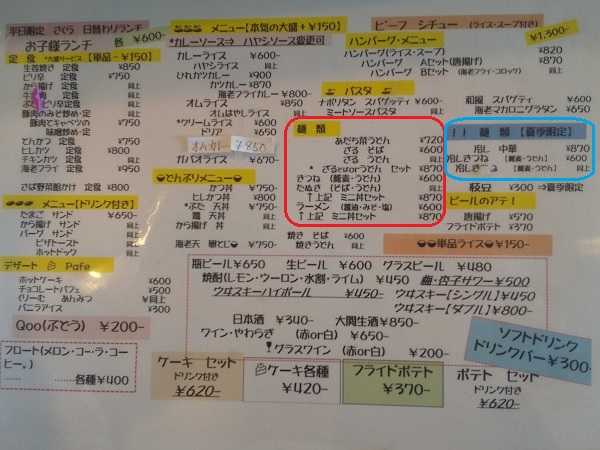 平日限定 さくら 日替わりランチ
お子様ランチ 各 ¥600-
定 食 *大盛サービス 【単品-¥150】
生姜焼き 定食 ¥850
ピリ辛 定食 ¥750
から揚げ 定食 同上
ピリ辛定食 同上
豚肉のみそ炒め 定食
豚肉とキャベツの
味噌炒め 定食
とんかつ 定食
ヒレかつ 定食
チキンカツ 定食 同上
海老フライ 定食 ¥950
さば野菜餡かけ 定食
メニュー【ドリンク付き】
たまご サンド ¥650-
から揚げ サンド
バーグ サンド
ピザトースト
ホットドック
デザート Pafe
ホットケーキ ¥600
チョコレートパフェ ¥500
くりーむ あんみつ 同上
バニラアイス ¥300
Qoo(ぶどう) ¥200-
フロート(メロン・コー・ラ・コーヒー。)
…… ………各種¥400
メニュー【本気の大盛+¥150】
*カレーソース⇒ ハヤシソース変更可
カレーライス ¥600-
ハヤシライス 同上
ひれカツカレー ¥900
カツカレー ¥870
海老フライカレー ¥800-
オムライス ¥850
オムはやしライス 同上
*クリームライス ¥600
ドリア ¥650
オムカレー ¥850
ガパオライス ¥670-
どんぶりメニュー
かつ 丼 ¥750-
ヒレかつ 丼 ¥800
*ぶた 天丼 ¥750
鶏 天丼 同上
から揚げ 丼 同上
ビーフ シチュー (ライス・スープ付き) ¥1,300-
ハンバーグ・メニュー
ハンバーグ(ライス・スープ) ¥820
ハンバーグ Aセット(唐揚げ) ¥870
ハンバーグ Bセット(海老フライ・コロッケ) 同上
パスタ
ナポリタン スパゲッティ ¥600-
ミートソースパスタ 同上
和風 スパゲティ ¥600-
海老マカロニグラタン ¥650
麺 類
あだち菜うどん ¥720
ざる そば ¥600
ざる うどん 同上
* ざるそばorうどん セット ¥870
きつね 【蕎麦・うどん】 ¥600
たぬき【そば・うどん】 同上
↑上記 ミニ丼セット ¥870
ラーメン (醤油・みそ・塩) ¥600
↑上記 ミニ丼セット ¥870
焼き そば ¥600
焼きうどん 同上
麺 類 【夏季限定】
冷し 中華 ¥870
冷しきつね 【蕎麦・うどん】 ¥600
【蕎麦・うどん】 同上
枝豆 ¥300 ⇒夏季限定
ビールのアテ!
唐揚げ ¥570
フライドポテト ¥370
単品ライス ¥150-
瓶ビール¥650 生ビール ¥600 グラスビール ¥480
焼酎(レモン・ウーロン・水割・ライム) ¥450 梅・杏子サワー¥500
ウヰスキーハイボール ¥450- ウヰスキー【シングル】¥450
ウヰスキー【ダブル】¥800-
日本酒 ¥340- 大関生酒¥850-
ワイン・やわらぎ (赤or白) ¥650-
グラスワイン (赤or白) ¥200-
ソフトドリンク
ドリンクバー¥300-
ケーキ セット
ドリンク付き
¥620-
ケーキ各種
¥420-
フライドポテト
¥370-
ポテト セット
ドリンク付き
¥620-